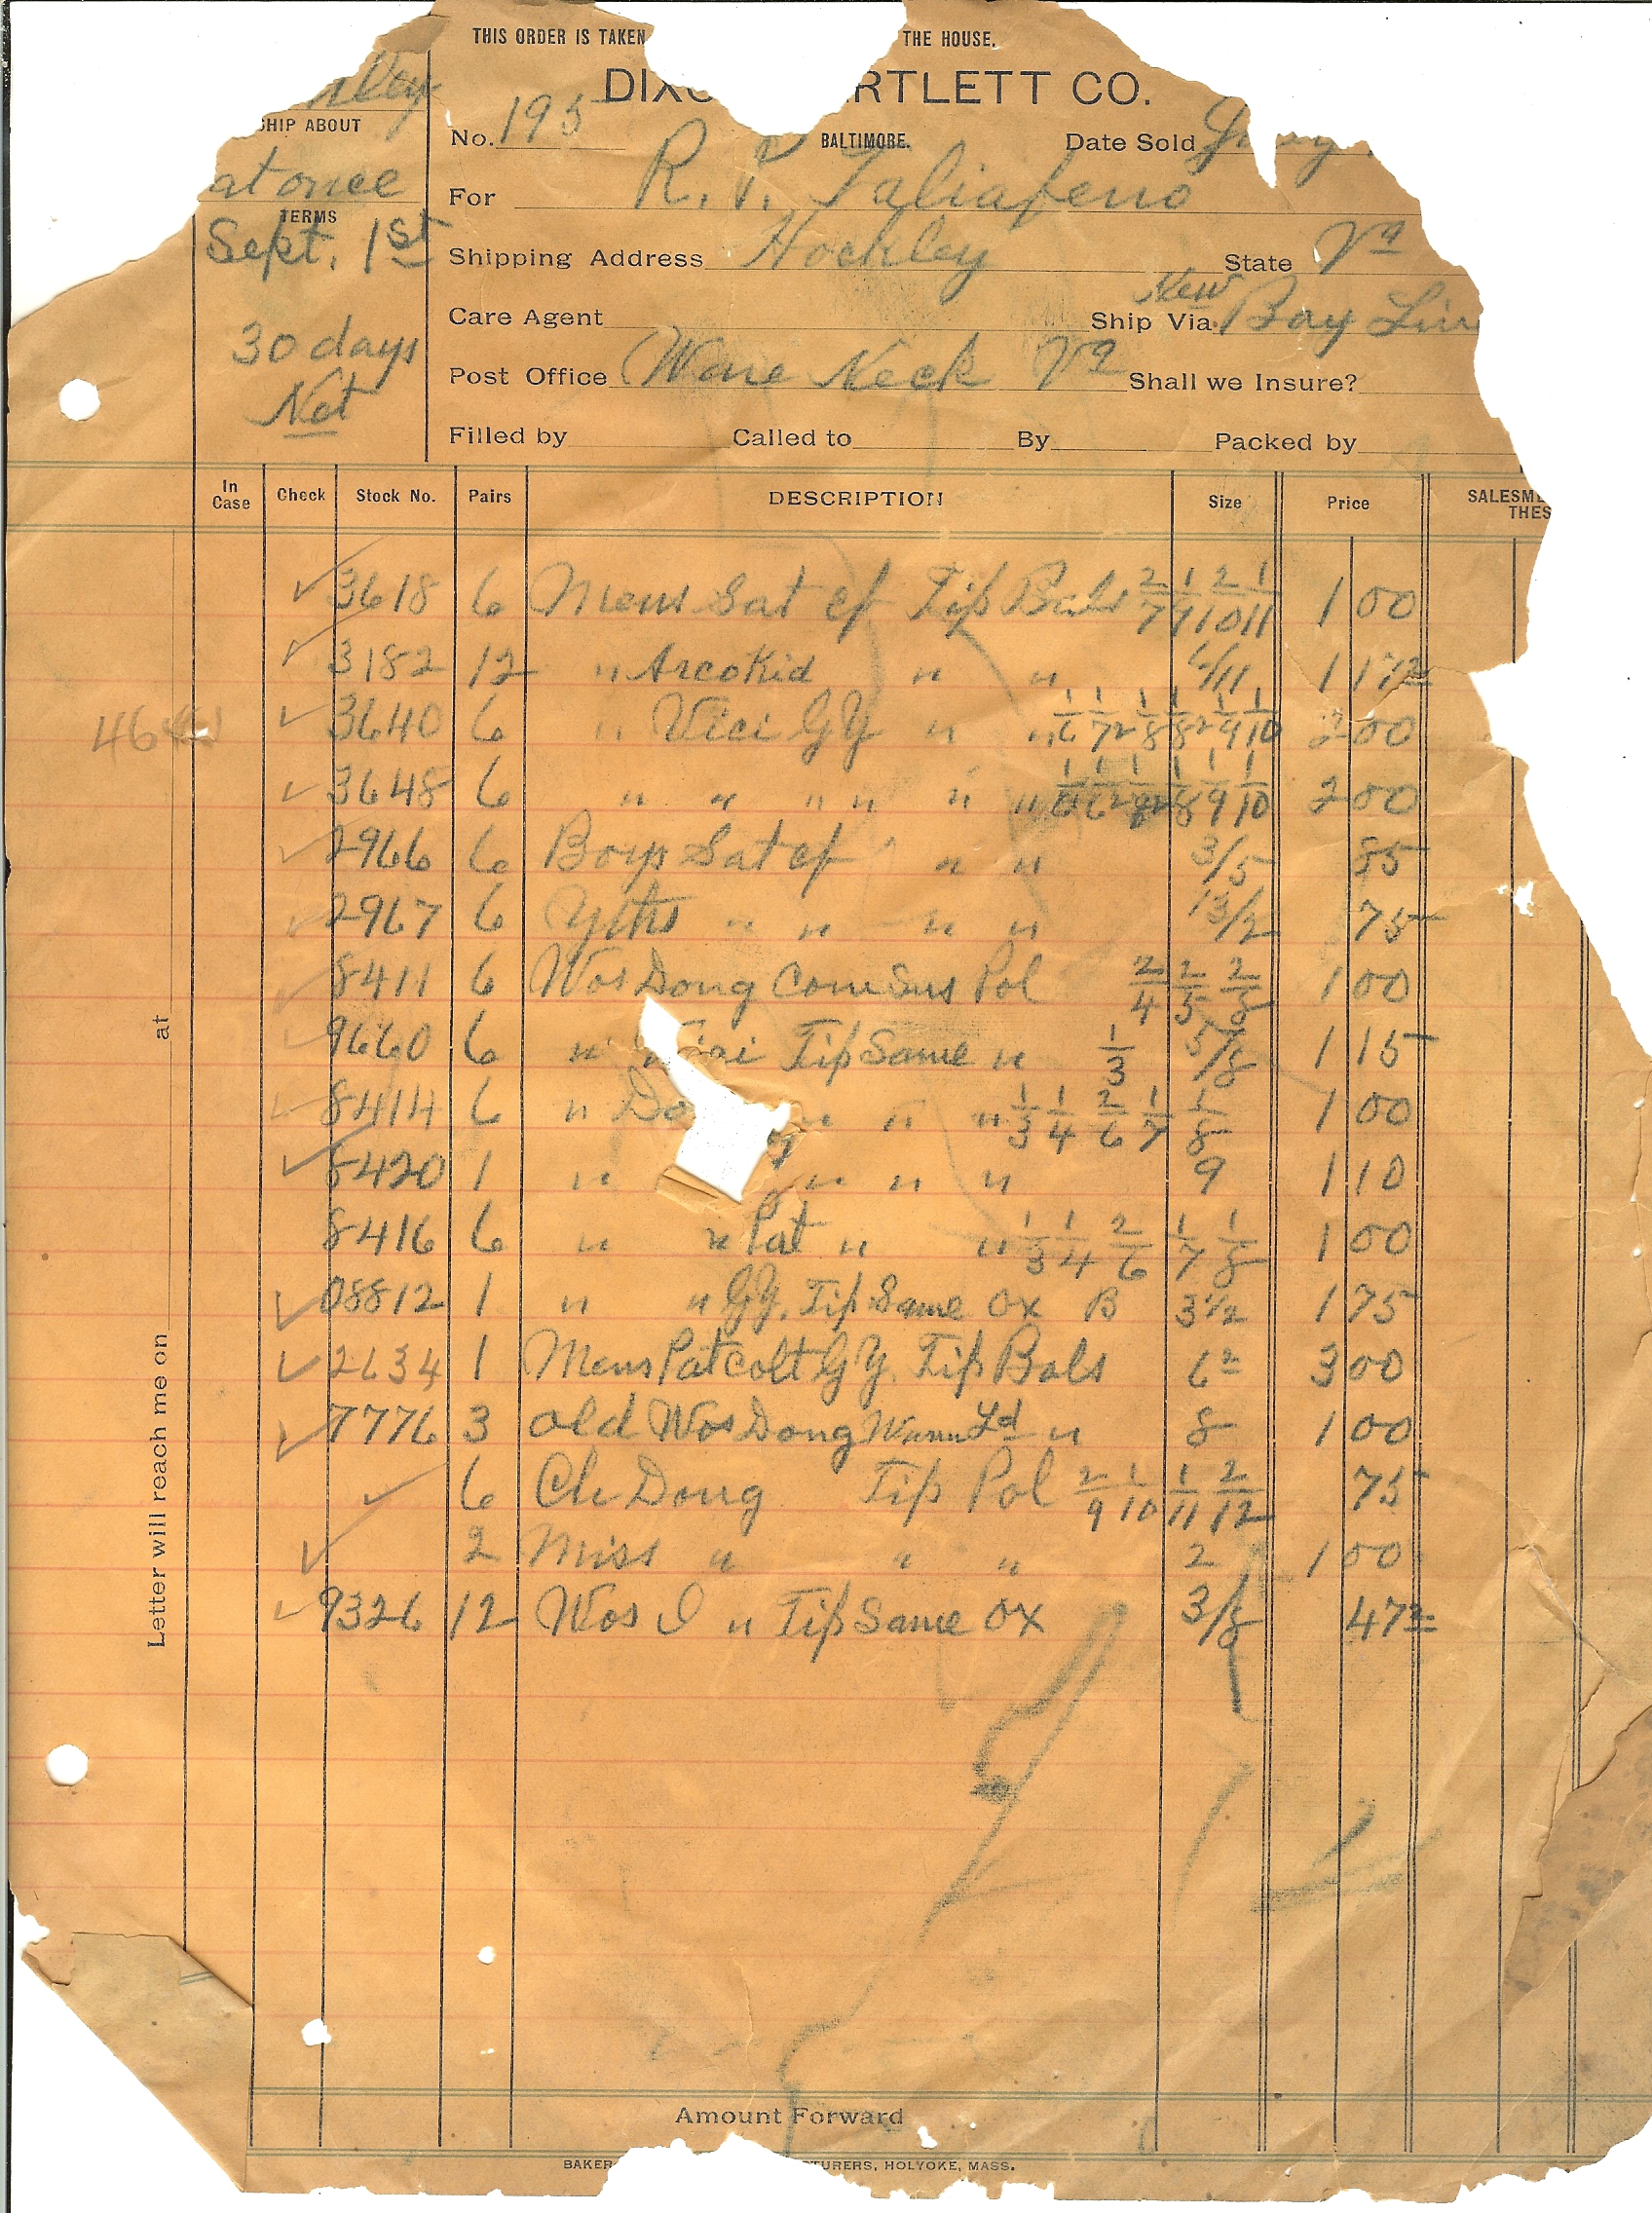 THIS ORDER IS TAKEN THE HOUSE.
DIXO RTLETT CO.
No. 195 BALTIMORE. Date Sold
SHIP ABOUT
at once
For R. T. Taliafeno
TERMS
Sept. 1st
Shipping Address Hockley State Va
Care Agent Ship Via New Bay Lin
30 days
Net
Post Office Ware Neck Va Shall we Insure?
Filled by Called to By Packed by
In Case Check Stock No. Pairs DESCRIPTION Size Price SALESME THES
✓ 3618 6 Mens Sat cf Tip Bals 2/7 1/9 2/10 1/11 1 00
✓ 3182 12 " Arco Kid " " 6/11 1 17 2
✓ 3640 6 " Vici GY " " 1/6 1/72 1/8 1/82 1/9 1/10 2 00
✓ 3648 6 " " " " " " 1/8 1/9 1/10 2 00
✓ 2966 6 Boys Sat cf " " 3/5 85
✓ 2967 6 Yths " " " " 13/2 75
✓ 8411 6 Wos Dong Com Sns Pol 2/4 2/5 2/8 1 00
✓ 9660 6 " Tip Same " 1/3 5/8 1 15
✓ 8414 6 " Do " " " 1/3 1/4 2/6 1/7 1/8 1 00
✓ 8420 1 " " " " 9 1 10
8416 6 " " Pat " " 1/3 1/4 2/6 1/7 1/8 1 00
✓ 08812 1 " " GY. Tip Same Ox B 3 1/2 1 75
✓ 2634 1 Mens Pat colt GY. Tip Bals 6 2 3 00
✓ 7776 3 Old Wos Dong Ld " 8 1 00
✓ 6 Ch Dong Tip Pol 2/9 1/10 1/11 2/12 75
✓ 2 Miss " " " 2 1 00
✓ 9326 12 Wos " Tip Same Ox 3/8 47 2
Letter will reach me on at
Amount Forward
BAKER TURERS, HOLYOKE, MASS.